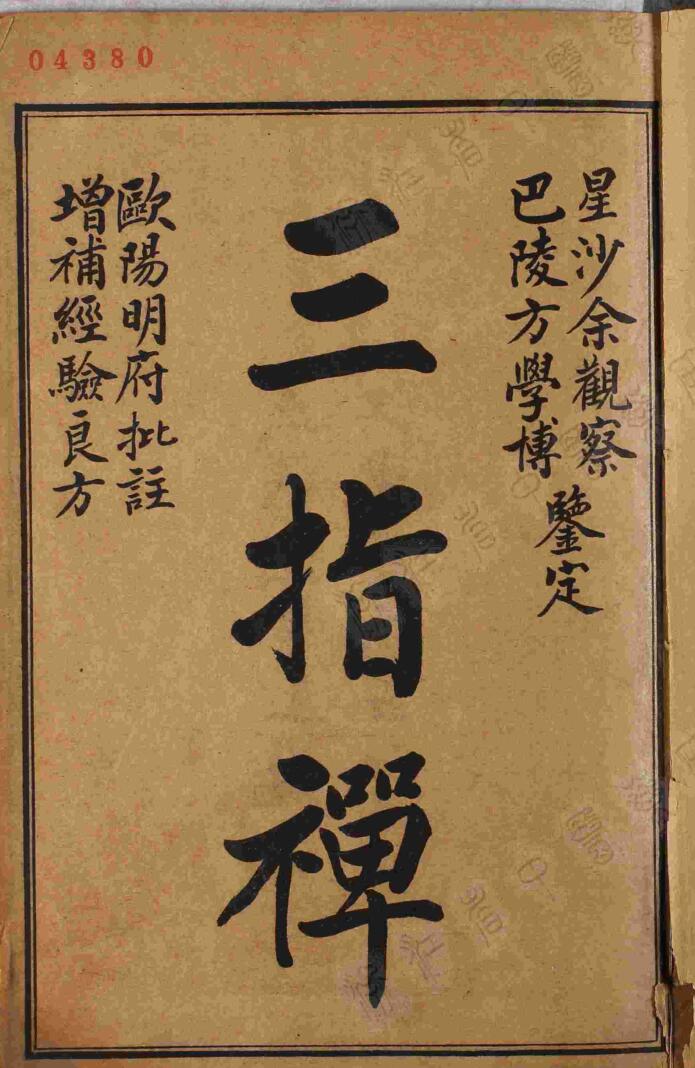 04380
星沙余觀察
巴陵方學博
鑒定
三指禪
歐陽明府批註
增補經驗良方